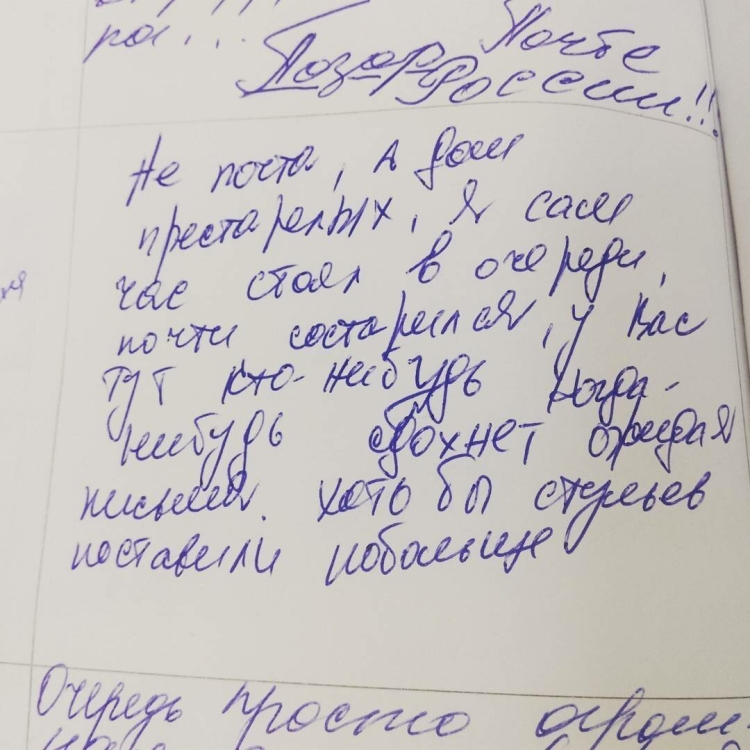 ра!..
Позор Почте
России!!!
Не почта, а дом
престарелых, я сам
час стоял в очереди,
почти состарился, у Вас
тут кто-нибудь когда-
нибудь сдохнет ожидая
письма. хоть бы стульев
поставили побольше
Очередь просто огром-